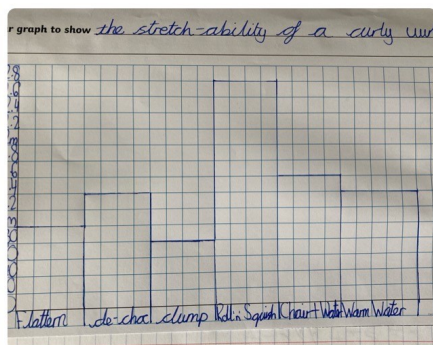 r graph to show the stretch-ability of a curly wur
Flattern de-choc clump Rollin Squish Chair + Water Warm Water